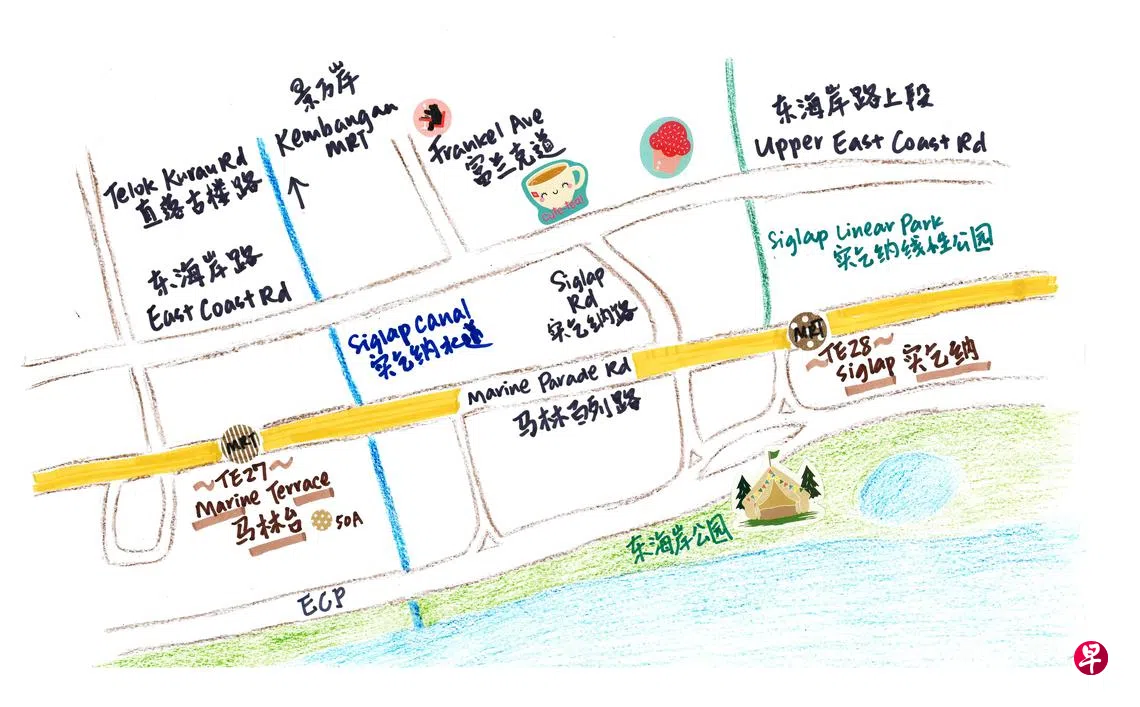 景万岸
Kembangan
MRT
Telok Kurau Rd
直落古楼路
Frankel Ave
富兰克道
cute-tea!
东海岸路上段
Upper East Coast Rd
东海岸路
East Coast Rd
Siglap Linear Park
实乞纳线性公园
Siglap
Rd
实乞纳路
Siglap Canal
实乞纳水道
MRT
~TE28~
Siglap 实乞纳
Marine Parade Rd
马林百列路
MRT
~TE27~
Marine Terrace
马林台 50A
东海岸公园
ECP
早